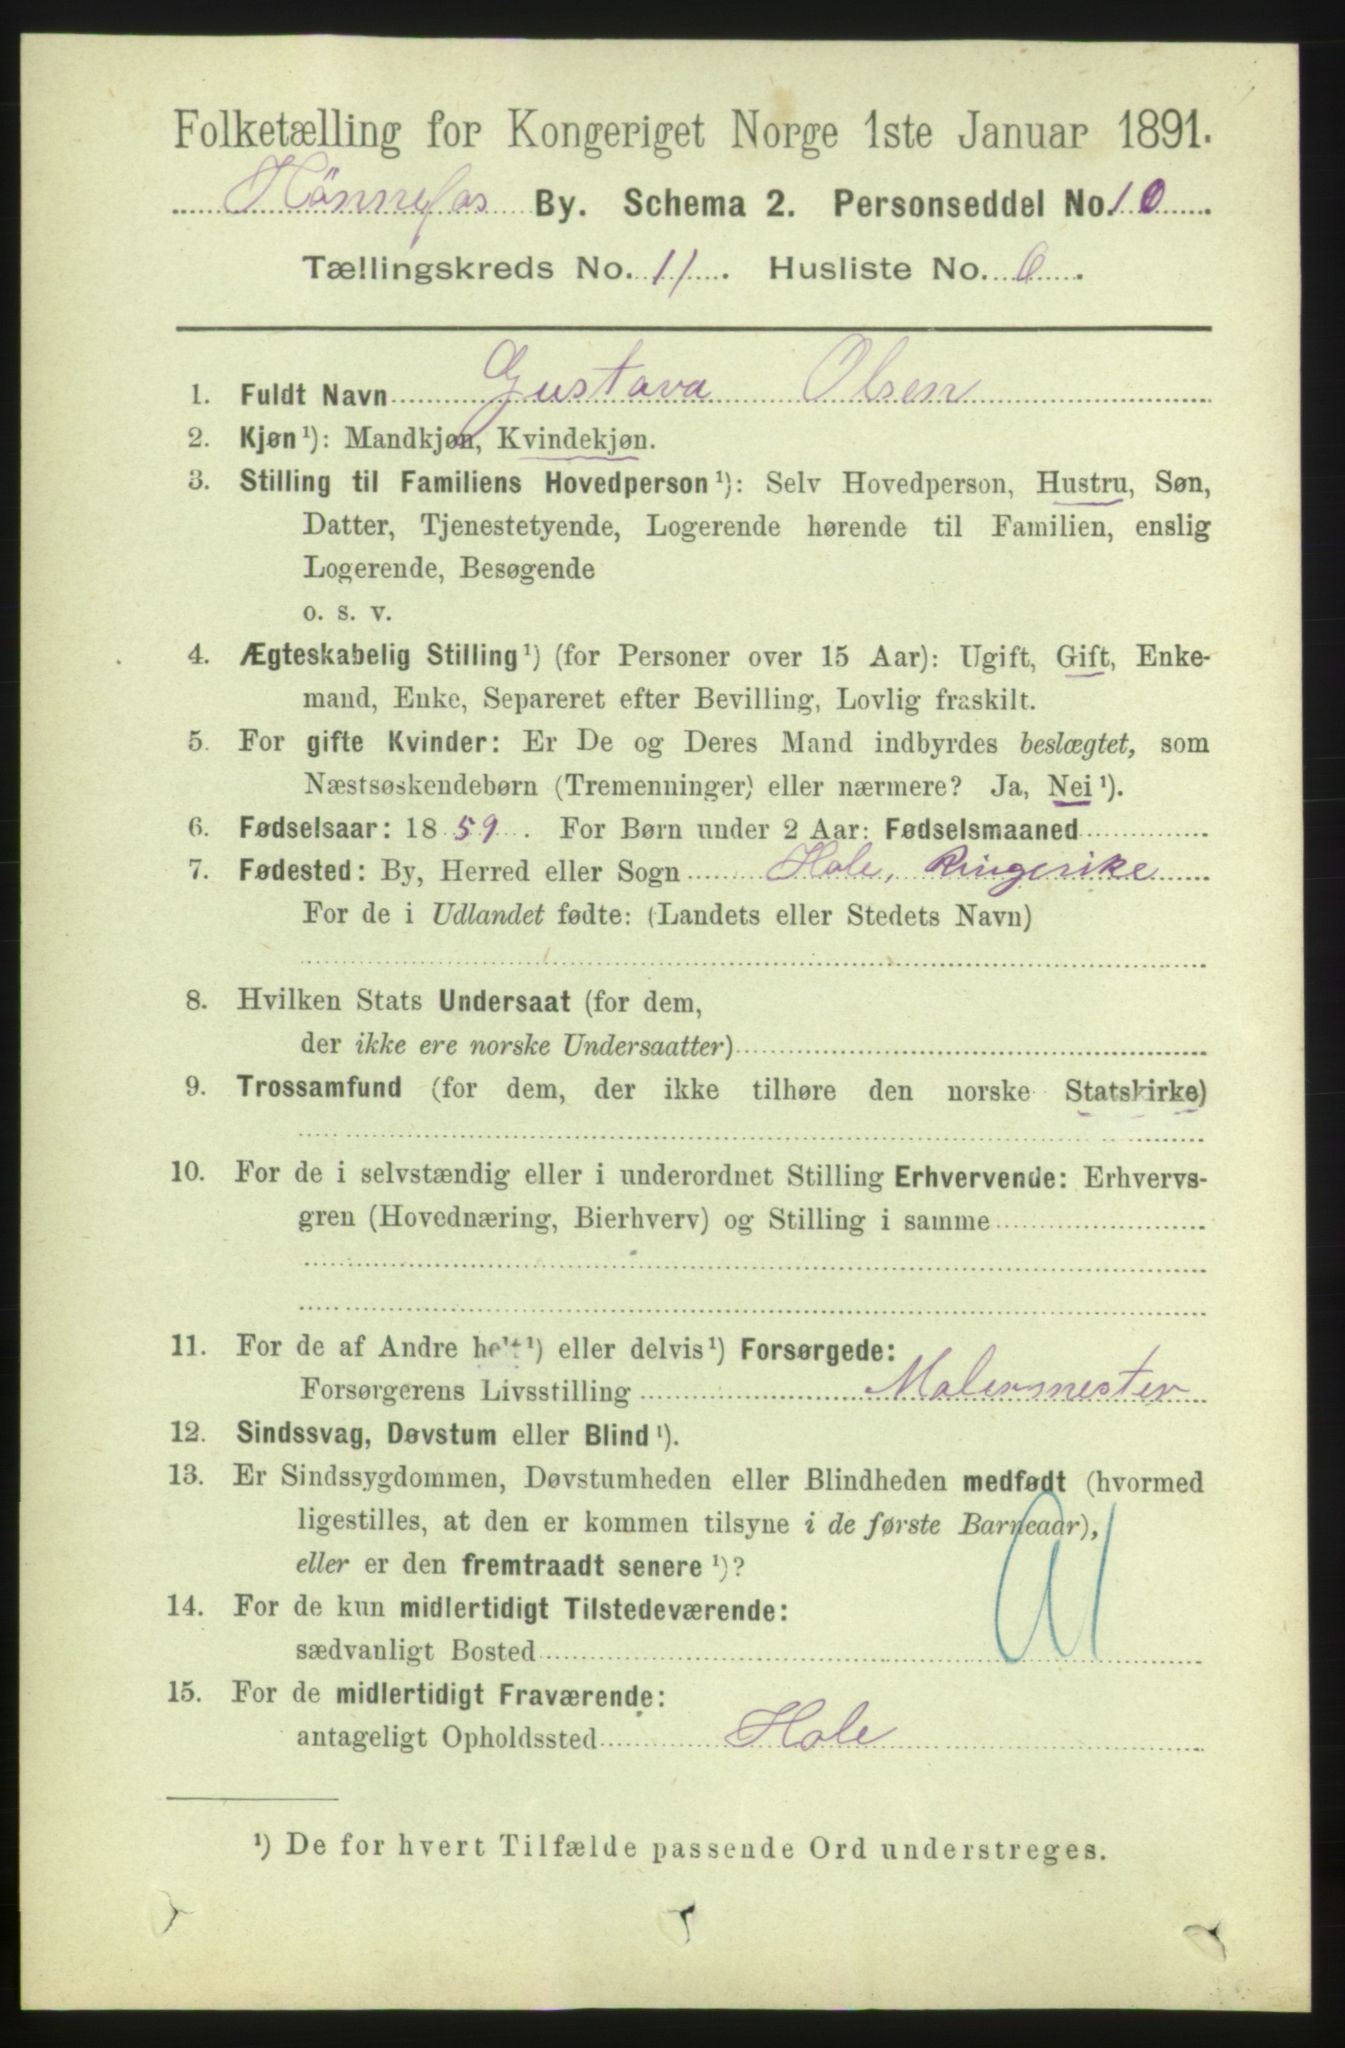 Folketælling for Kongeriget Norge 1ste Januar 1891.
Hönnefos By. Schema 2. Personseddel No. 10
Tællingskreds No. 11. Husliste No. 6.
1. Fuldt Navn Gustava Olsen
2. Kjøn ¹): Mandkjøn, Kvindekjøn.
3. Stilling til Familiens Hovedperson ¹): Selv Hovedperson, Hustru, Søn,
Datter, Tjenestetyende, Logerende hørende til Familien, enslig
Logerende, Besøgende
o. s. v.
4. Ægteskabelig Stilling ¹) (for Personer over 15 Aar): Ugift, Gift, Enke-
mand, Enke, Separeret efter Bevilling, Lovlig fraskilt.
5. For gifte Kvinder: Er De og Deres Mand indbyrdes beslægtet, som
Næstsøskendebørn (Tremenninger) eller nærmere? Ja, Nei ¹).
6. Fødselsaar: 1859. For Børn under 2 Aar: Fødselsmaaned
7. Fødested: By, Herred eller Sogn Hole, Ringerike
For de i Udlandet fødte: (Landets eller Stedets Navn)
8. Hvilken Stats Undersaat (for dem,
der ikke ere norske Undersaatter)
9. Trossamfund (for dem, der ikke tilhøre den norske Statskirke)
10. For de i selvstændig eller i underordnet Stilling Erhvervende: Erhvervs-
gren (Hovednæring, Bierhverv) og Stilling i samme
11. For de af Andre helt ¹) eller delvis ¹) Forsørgede:
Forsørgerens Livsstilling Malermester
12. Sindssvag, Døvstum eller Blind ¹).
13. Er Sindssygdommen, Døvstumheden eller Blindheden medfødt (hvormed
ligestilles, at den er kommen tilsyne i de første Barneaar),
eller er den fremtraadt senere ¹)?
14. For de kun midlertidigt Tilstedeværende:
sædvanligt Bosted
15. For de midlertidigt Fraværende:
antageligt Opholdssted Hole
¹) De for hvert Tilfælde passende Ord understreges.